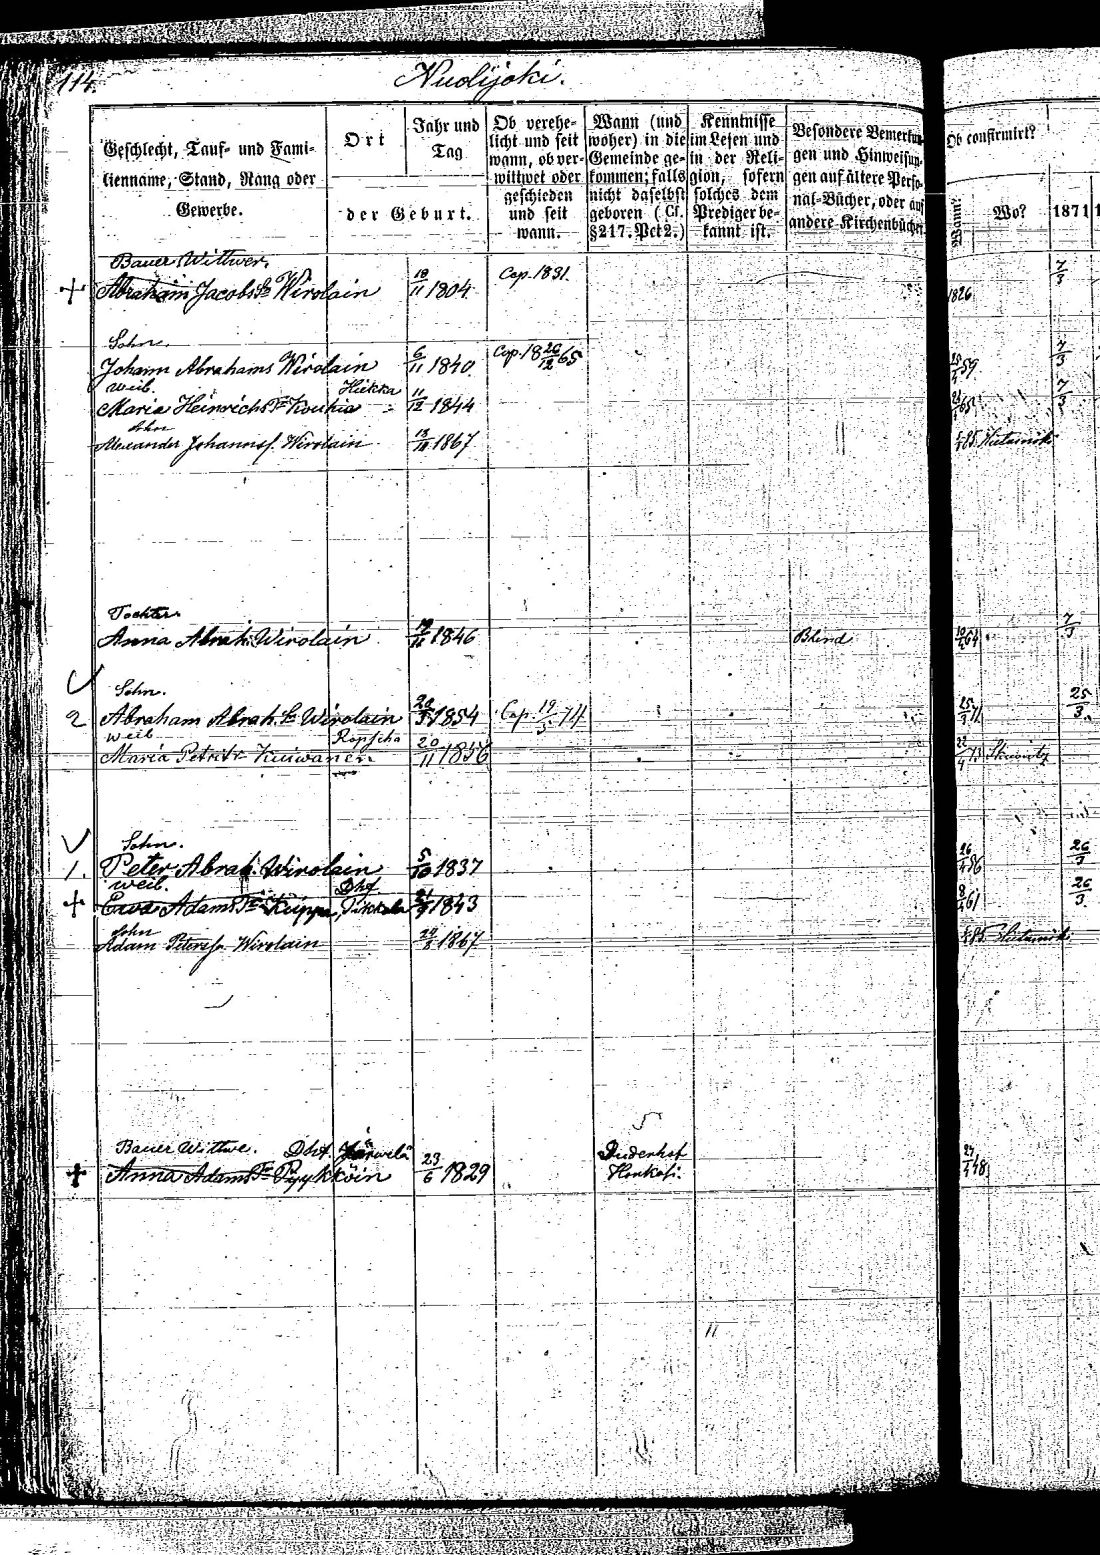 114.
Nuolijoki.
Geschlecht, Tauf- und Fami-
lienname, Stand, Rang oder
Gewerbe.
Ort
Jahr und
Tag
der Geburt.
Ob verehe-
licht und seit
wann, ob ver-
wittwet oder
geschieden
und seit
wann.
Wann (und
woher) in die
Gemeinde ge-
kommen; falls
nicht daselbst
geboren (Cf.
§217. Pct 2.)
Kenntnisse
im Lesen und
in der Reli-
gion, sofern
solches dem
Prediger be-
kannt ist.
Besondere Bemerkun-
gen und Hinweisun-
gen auf ältere Perso-
nal-Bücher, oder auf
andere Kirchenbücher
Ob confirmirt?
Wann?
Wo?
1871
Bauer Wittwer.
Abraham Jacobs S. Wirolain 18/11 1804. Cop. 1831. 1826 7/3
Sohn.
Johann Abrahams Wirolain 6/11 1840. Cop. 18 26/12 65 59 7/3
Weib. Hükka
Maria Heinrichs T. Koukia 11/12 1844 65 7/3
Sohn
Alexander Johannsf. Wirolain 1867 85
Tochter
Anna Abrah. Wirolain 1846 Blind 64 7/3
Sohn.
2 Abraham Abrah. S. Wirolain 1854 Cop. 19/5 74 25/3
Weib Ropscha
Maria Petri tr. Kuiwanen 20/11 1856 22/4 73
Sohn.
1. Peter Abrah. Wirolain 5/10 1837 56 26/3
Weib. Dhf.
Ewa Adams T. Kuippa, Pikkola 1843 61 26/3
Sohn
Adam Petersf. Wirolain 1867 85
Bauer Wittwe. Dhf. Järwelä Duderhof
Anna Adams T. Pyykköin 23/6 1829 Honkasi. 48